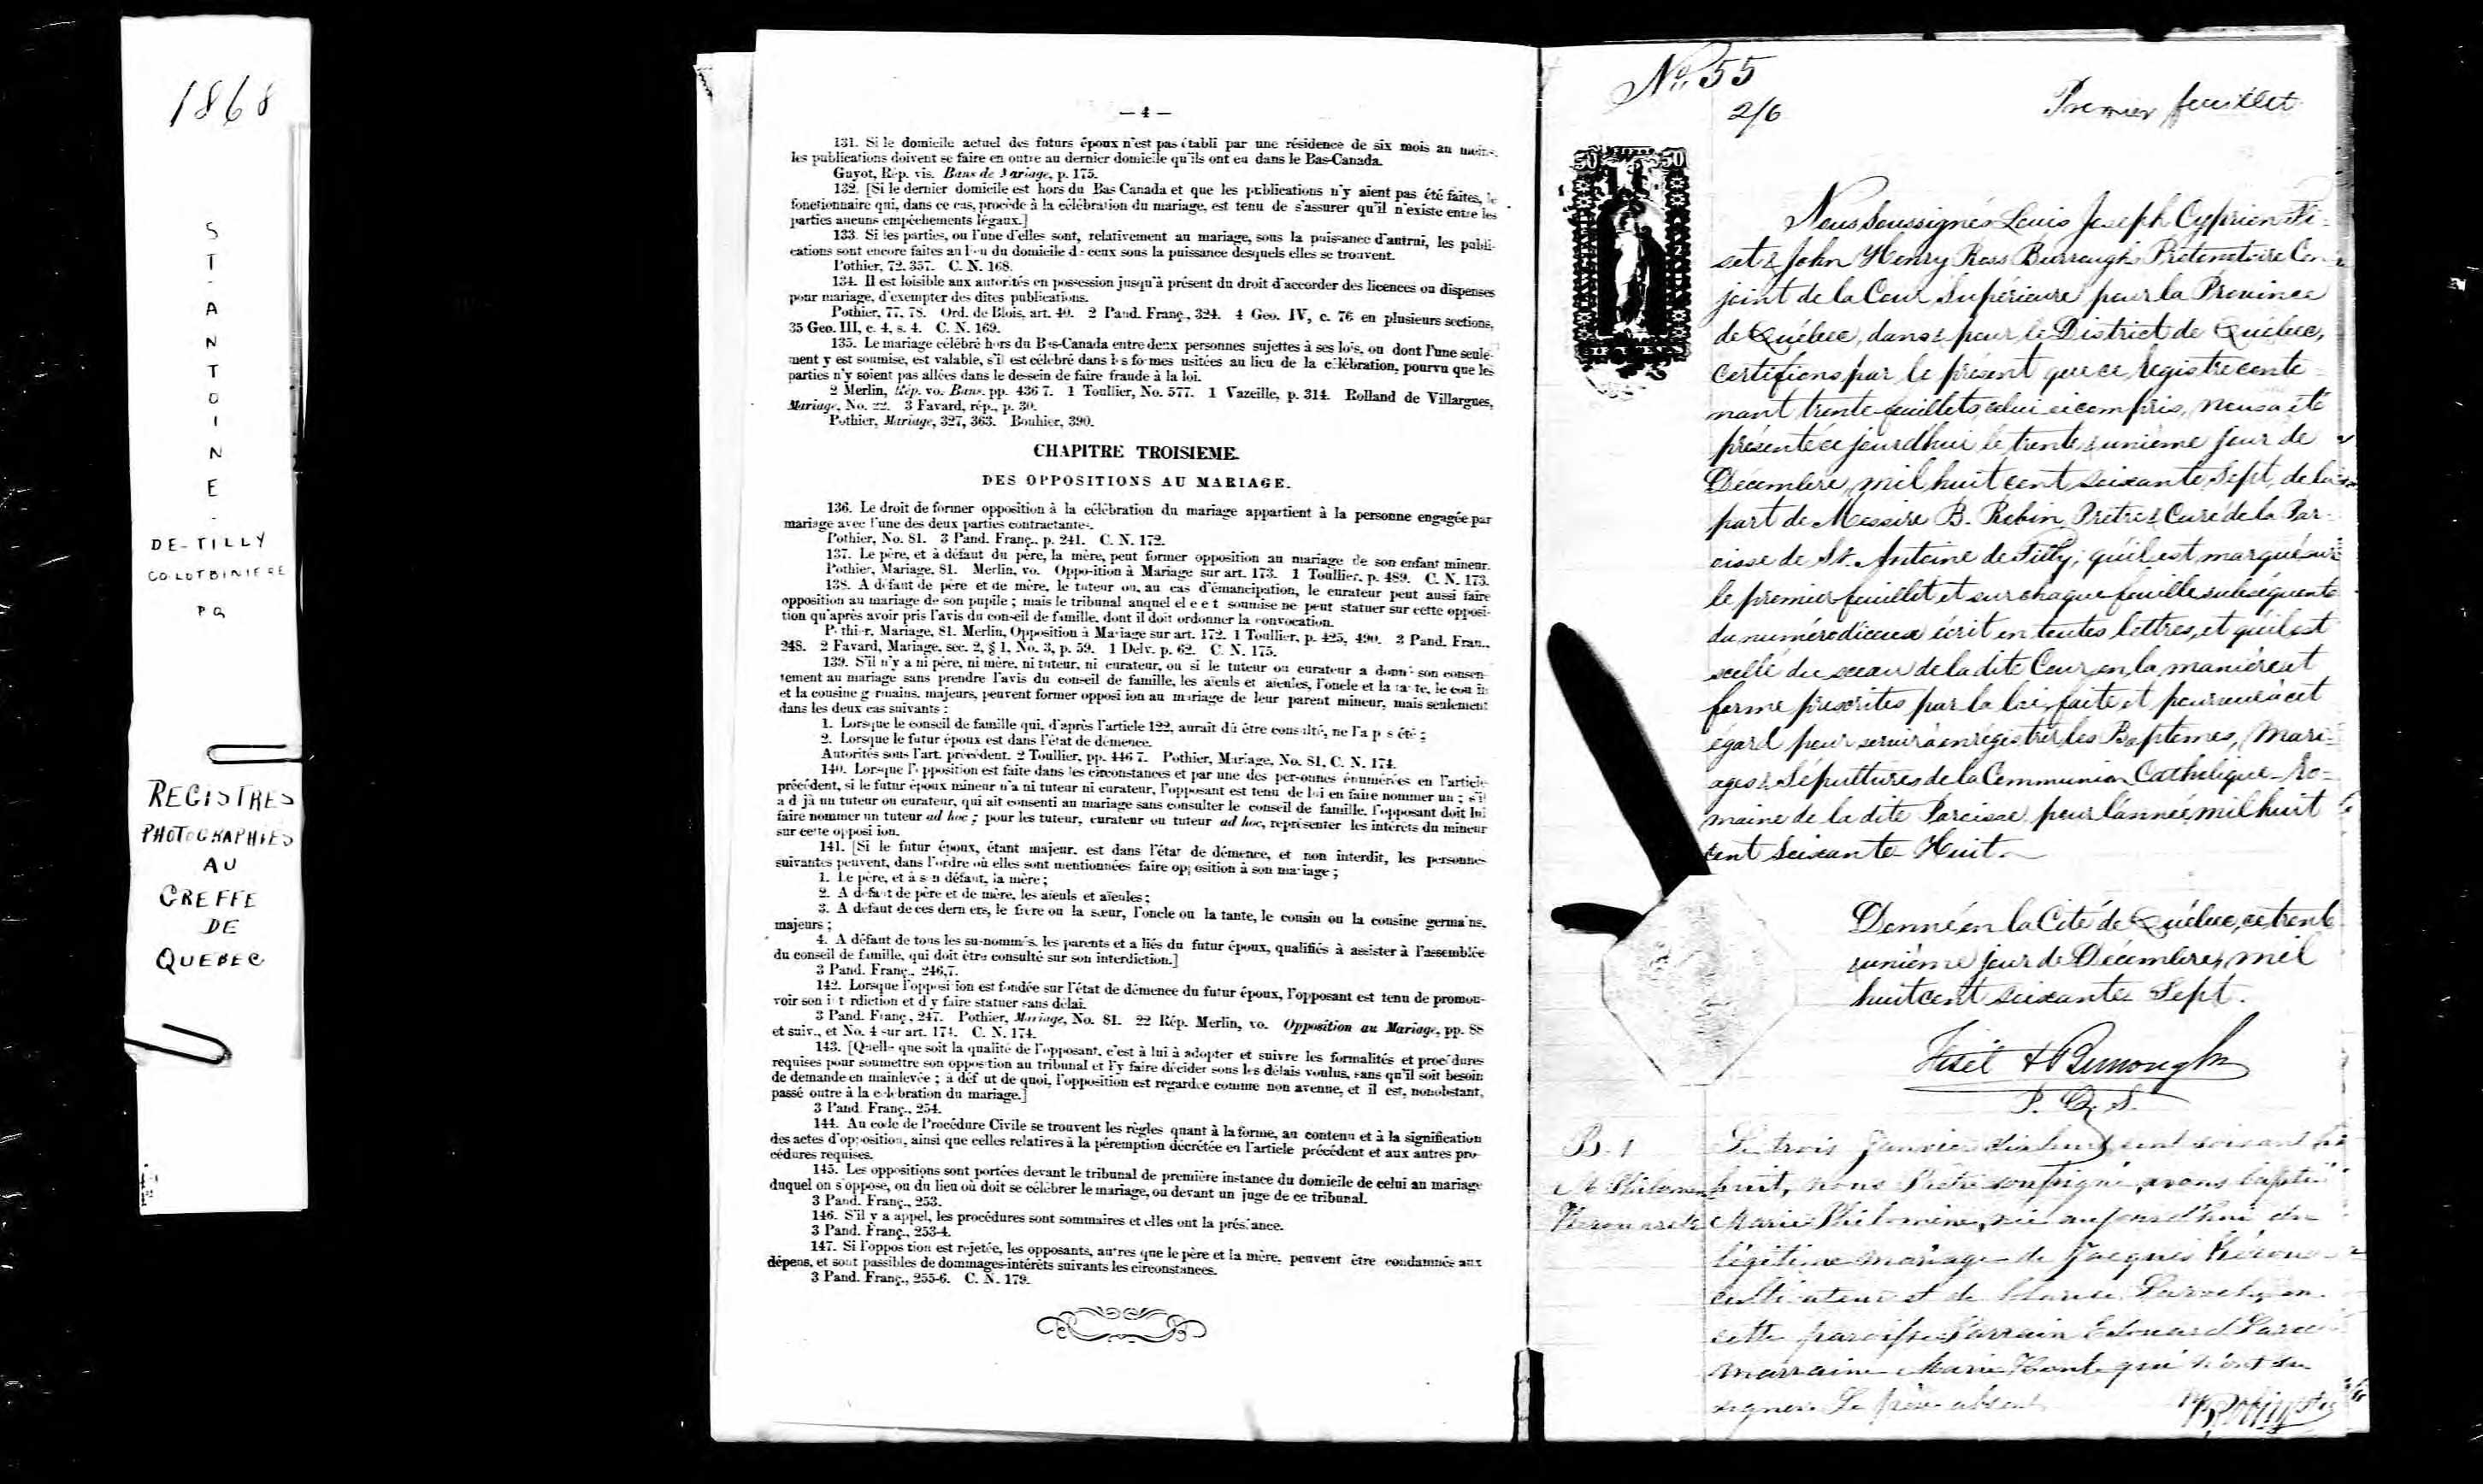 1868
ST-ANTOINE-
DE-TILLY
CO. LOTBINIERE
PQ
REGISTRES
PHOTOGRAPHIES
AU
GREFFE
DE
QUEBEC
— 4 —
131. Si le domicile actuel des futurs époux n'est pas établi par une résidence de six mois au moins,
les publications doivent se faire en outre au dernier domicile qu'ils ont eu dans le Bas-Canada.
Guyot, Rép. vis. Bans de Mariage, p. 175.
132. [Si le dernier domicile est hors du Bas Canada et que les publications n'y aient pas été faites, le
fonctionnaire qui, dans ce cas, procède à la célébration du mariage, est tenu de s'assurer qu'il n'existe entre les
parties aucuns empêchements légaux.]
133. Si les parties, ou l'une d'elles sont, relativement au mariage, sous la puissance d'autrui, les publi-
cations sont encore faites au lieu du domicile de ceux sous la puissance desquels elles se trouvent.
Pothier, 72. 357. C. N. 168.
134. Il est loisible aux autorités en possession jusqu'à présent du droit d'accorder des licences ou dispenses
pour mariage, d'exempter des dites publications.
Pothier, 77. 78. Ord. de Blois, art. 40. 2 Pand. Franç., 324. 4 Geo. IV, c. 76 en plusieurs sections,
35 Geo. III, c. 4, s. 4. C. N. 169.
135. Le mariage célébré hors du Bas-Canada entre deux personnes sujettes à ses lois, ou dont l'une seule-
ment y est soumise, est valable, s'il est célébré dans les formes usitées au lieu de la célébration, pourvu que les
parties n'y soient pas allées dans le dessein de faire fraude à la loi.
2 Merlin, Rép. vo. Bans. pp. 436 7. 1 Toullier, No. 577. 1 Vazeille, p. 314. Rolland de Villargues,
Mariage, No. 22. 3 Favard, rép., p. 30.
Pothier, Mariage, 327, 363. Bouhier, 390.
CHAPITRE TROISIEME.
DES OPPOSITIONS AU MARIAGE.
136. Le droit de former opposition à la célébration du mariage appartient à la personne engagée par
mariage avec l'une des deux parties contractantes.
Pothier, No. 81. 3 Pand. Franç.. p. 241. C. N. 172.
137. Le père, et à défaut du père, la mère, peut former opposition au mariage de son enfant mineur.
Pothier, Mariage. 81. Merlin, vo. Opposition à Mariage sur art. 173. 1 Toullier. p. 489. C. N. 173.
138. A défaut de père et de mère, le tuteur ou, au cas d'émancipation, le curateur peut aussi faire
opposition au mariage de son pupile ; mais le tribunal auquel elle est soumise ne peut statuer sur cette opposi-
tion qu'après avoir pris l'avis du conseil de famille, dont il doit ordonner la convocation.
Pothier, Mariage, 81. Merlin, Opposition à Mariage sur art. 172. 1 Toullier, p. 425, 490. 3 Pand. Fran..
248. 2 Favard, Mariage, sec. 2, § 1, No. 3, p. 59. 1 Delv. p. 62. C. N. 175.
139. S'il n'y a ni père, ni mère, ni tuteur, ni curateur, ou si le tuteur ou curateur a donné son consen-
tement au mariage sans prendre l'avis du conseil de famille, les aïeuls et aïeules, l'oncle et la tante, le cousin
et la cousine germains, majeurs, peuvent former opposition au mariage de leur parent mineur, mais seulement
dans les deux cas suivants :
1. Lorsque le conseil de famille qui, d'après l'article 122, aurait dû être consulté, ne l'a pas été ;
2. Lorsque le futur époux est dans l'état de démence.
Autorités sous l'art. précédent. 2 Toullier, pp. 446 7. Pothier, Mariage, No. 81, C. N. 174.
140. Lorsque l'opposition est faite dans les circonstances et par une des personnes énumérées en l'article
précédent, si le futur époux mineur n'a ni tuteur ni curateur, l'opposant est tenu de lui en faire nommer un ; s'il
a déjà un tuteur ou curateur, qui ait consenti au mariage sans consulter le conseil de famille, l'opposant doit lui
faire nommer un tuteur ad hoc ; pour les tuteur, curateur ou tuteur ad hoc, représenter les intérêts du mineur
sur cette opposition.
141. [Si le futur époux, étant majeur, est dans l'état de démence, et non interdit, les personnes
suivantes peuvent, dans l'ordre où elles sont mentionnées faire opposition à son mariage ;
1. Le père, et à son défaut, la mère ;
2. A défaut de père et de mère, les aïeuls et aïeules ;
3. A défaut de ces derniers, le frère ou la sœur, l'oncle ou la tante, le cousin ou la cousine germains,
majeurs ;
4. A défaut de tous les susnommés, les parents et alliés du futur époux, qualifiés à assister à l'assemblée
du conseil de famille, qui doit être consulté sur son interdiction.]
3 Pand. Franç., 246,7.
142. Lorsque l'opposition est fondée sur l'état de démence du futur époux, l'opposant est tenu de promou-
voir son interdiction et d'y faire statuer sans délai.
3 Pand. Franç, 247. Pothier, Mariage, No. 81. 22 Rép. Merlin, vo. Opposition au Mariage, pp. 88
et suiv., et No. 4 sur art. 174. C. N. 174.
143. [Quelle que soit la qualité de l'opposant, c'est à lui à adopter et suivre les formalités et procédures
requises pour soumettre son opposition au tribunal et l'y faire décider sous les délais voulus, sans qu'il soit besoin
de demande en mainlevée ; à défaut de quoi, l'opposition est regardée comme non avenue, et il est, nonobstant,
passé outre à la célébration du mariage.]
3 Pand. Franç., 254.
144. Au code de Procédure Civile se trouvent les règles quant à la forme, au contenu et à la signification
des actes d'opposition, ainsi que celles relatives à la péremption décrétée en l'article précédent et aux autres pro-
cédures requises.
145. Les oppositions sont portées devant le tribunal de première instance du domicile de celui au mariage
duquel on s'oppose, ou du lieu où doit se célébrer le mariage, ou devant un juge de ce tribunal.
3 Pand. Franç., 253.
146. S'il y a appel, les procédures sont sommaires et elles ont la préséance.
3 Pand. Franç., 253-4.
147. Si l'opposition est rejetée, les opposants, autres que le père et la mère, peuvent être condamnés aux
dépens, et sont passibles de dommages-intérêts suivants les circonstances.
3 Pand. Franç., 255-6. C. N. 179.
No. 55
2/6
Premier feuillet
50 50
Nous Soussignés Louis Joseph Cyprien Fi-
set & John Henry Ross Burroughs Protonotaire Con-
joint de la Cour Supérieure pour la Province
de Québec, dans & pour le District de Québec,
Certifions par le présent que ce registre conte-
nant trente feuillets, celui ci compris, nous a été
présenté ce jourd'hui le trente & unième jour de
Décembre, mil huit cent soixante Sept, de la
part de Messire B. Robin, Prêtre & Curé de la Par-
oisse de St. Antoine de Tilly; qu'il est marqué sur
le premier feuillet et sur chaque feuille subséquente
du numéro d'iceux écrit en toutes lettres, et qu'il est
scellé du sceau de la dite Cour, en la manière et
forme prescrites par la loi, faite et pourvue à cet
égard pour servir à enrégistrer les Baptêmes, Mari-
ages & Sépultures de la Communion Catholique-Ro-
maine de la dite Paroisse, pour l'année mil huit
cent Soixante-Huit.
Donné en la Cité de Québec, ce trente
& unième jour de Décembre, mil
huit cent soixante Sept.
Fiset & Burroughs
P. C. S.
B. 1
M. Philomene
Le trois Janvier mil huit cent soixante
huit, nous Prêtre soussigné, avons baptisé
Marie Philomène, née aujourd'hui du
légitime mariage de Jacques
cultivateur et de Laroche, en
cette paroisse. Parrain Edouard
marraine Marie qui n'ont su
signer. Le père absent
B Robin Ptre